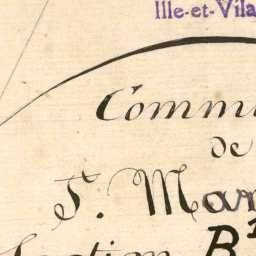 Ille-et-Vila
Commu
de
St. Mar
Section B1